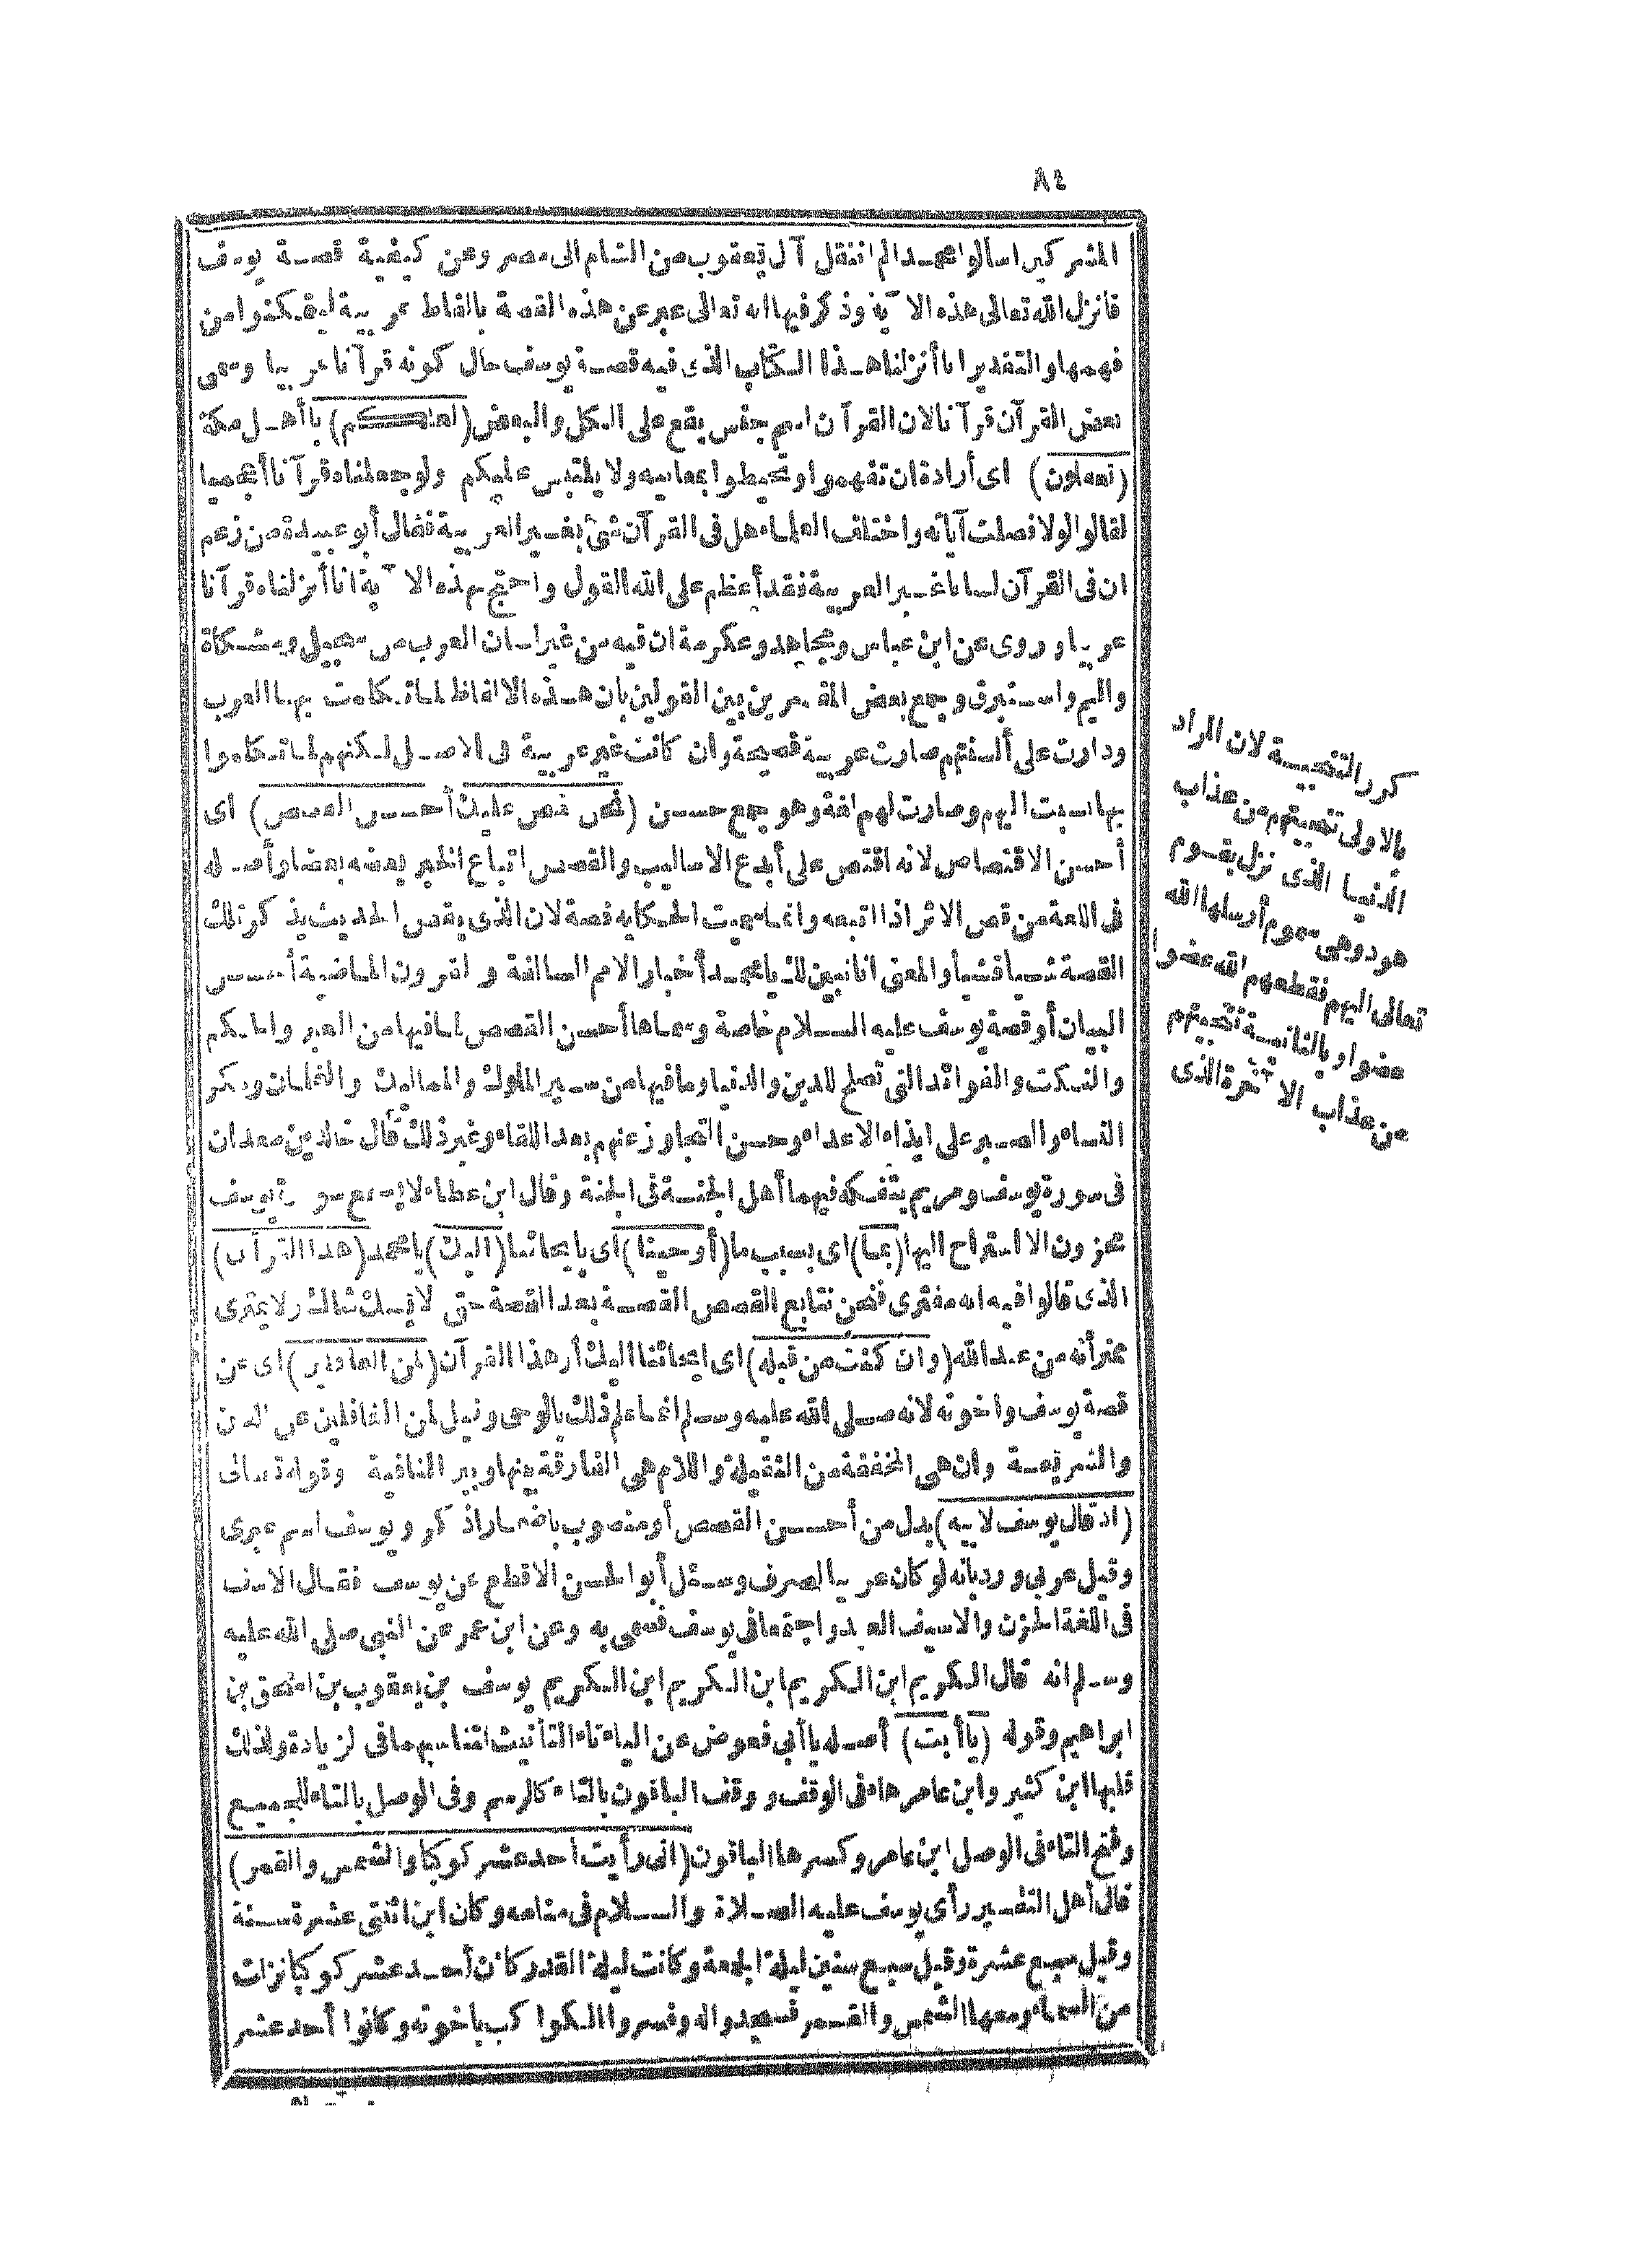 ٨٤
المشركين اسألوا محمدا لم انتقل آل يعقوب من الشام الى مصر وعن كيفية قصة يوسف
فأنزل الله تعالى هذه الآية وذكر فيها انه تعالى عبر عن هذه القصة بالفاظ عربية ليتمكنوا من
فهمها والتقدير انا أنزلنا هذا الكتاب الذى فيه قصة يوسف حال كونه قرآنا عربيا وسمى
بعض القرآن قرآنا لان القرآن اسم جنس يقع على الكل والبعض (لعلكم) يا أهل مكة
(تعقلون) اى أرادة ان تفهموا وتحيطوا بمعانيه ولا يلتبس عليكم ولو جعلناه قرآنا أعجميا
لقالوا لولا فصلت آياته واختلف العلماء هل فى القرآن شئ بغير العربية فقال أبو عبيدة من زعم
ان فى القرآن لسانا غير العربية فقد أعظم على الله القول واحتج بهذه الآية انا أنزلناه قرآنا
عربيا وروى عن ابن عباس ومجاهد وعكرمة ان فيه من غير لسان العرب من سجيل ومشكاة
واليم واستبرق وجمع بعض المفسرين بين القولين بأن هذه الالفاظ لما تكلمت بها العرب
ودارت على ألسنتهم صارت عربية فصيحة وان كانت غير عربية فى الاصل لكنهم لما تكلموا
بها نسبت اليهم وصارت لهم لغة وهو جمع حسن (نحن نقص عليك أحسن القصص) اى
أحسن الاقتصاص لانه اقتص على أبدع الاساليب والقصص اتباع الخبر بعضه بعضا وأصله
فى اللغة من قص الاثر اذا اتبعه وانما سميت الحكاية قصة لان الذى يقص الحديث يذكر تلك
القصة شيأ فشيأ والمعنى انا نبين لك يا محمد أخبار الامم السالفة والقرون الماضية أحسن
البيان أو قصة يوسف عليه السلام خاصة وسماها أحسن القصص لما فيها من العبر والحكم
والنكت والفوائد التى تصلح للدين والدنيا وما فيها من سير الملوك والمماليك والعلماء ومكر
النساء والصبر على ايذاء الاعداء وحسن التجاوز عنهم بعد اللقاء وغير ذلك قال خالد بن معدان
فى سورة يوسف ومريم يتفكه فيهما أهل الجنة فى الجنة وقال ابن عطاء لا يسمع سورة يوسف
محزون الا استراح اليها (بما) اى بسبب ما (أوحينا) اى بايحائنا (اليك) يا محمد (هذا القرآن)
الذى قالوا فيه انه مفترى فنحن نتابع القصص القصة بعد القصة حتى لا يشك شاك ولا يمترى
ممتر أنه من عند الله (وان كنت من قبله) اى ايحائنا اليك أو هذا القرآن (لمن الغافلين) اى عن
قصة يوسف واخوته لانه صلى الله عليه وسلم انما علم ذلك بالوحى وقيل لمن الغافلين عن الدين
والشريعة وان هى المخففة من الثقيلة واللام هى الفارقة بينها وبين النافية وقوله تعالى
(اذ قال يوسف لابيه) بدل من أحسن القصص أو منصوب باضمار اذكر ويوسف اسم عبرى
وقيل عربى ورد بأنه لو كان عربيا لصرف وسئل أبو الحسن الاقطع عن يوسف فقال الاسف
فى اللغة الحزن والاسيف العبد واجتمعا فى يوسف فسمى به وعن ابن عمر عن النبى صلى الله عليه
وسلم انه قال الكريم ابن الكريم ابن الكريم ابن الكريم يوسف بن يعقوب بن اسحق بن
ابراهيم وقوله (يا أبت) أصله يا أبى فعوض عن الياء تاء التأنيث لتناسبهما فى الزيادة ولذلك
قلبها ابن كثير وابن عامر هاء فى الوقف ووقف الباقون بالتاء كالرسم وفى الوصل بالتاء للجميع
وفتح التاء فى الوصل ابن عامر وكسرها الباقون (انى رأيت أحد عشر كوكبا والشمس والقمر)
قال أهل التفسير رأى يوسف عليه الصلاة والسلام فى منامه وكان ابن اثنتى عشرة سنة
وقيل سبع عشرة وقيل سبع سنين ليلة الجمعة وكانت ليلة القدر كان أحد عشر كوكبا نزلت
من السماء ومعها الشمس والقمر فسجدوا له وفسروا الكواكب باخوته وكانوا أحد عشر
كرر التنجية لان المراد
بالاولى تنجيتهم من عذاب
الدنيا الذى نزل بقوم
هود وهى سموم أرسلها الله
تعالى اليهم فقطعهم الله عضوا
عضوا وبالثانية تنجيتهم
من عذاب الآخرة الذى